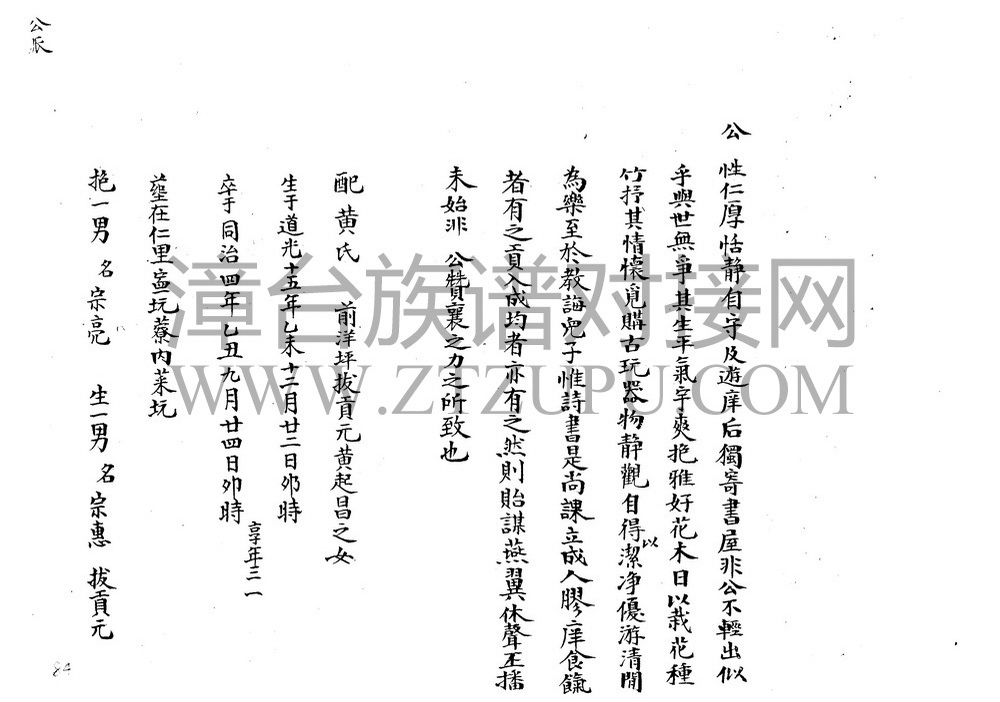 公 性仁厚恬静自守及遊庠后獨寄書屋非公不輕出似
乎與世無爭其生平氣宇爽抱雅好花木日以栽花種
竹抒其情懷覓購古玩器物静觀自得以潔净優游清閒
為樂至於教誨兒子惟詩書是尚課立成人膠庠食餼
者有之貢入成均者亦有之然則貽謀燕翼休聲丕播
未始非 公贊襄之力之所致也
配黄氏 前洋坪拔貢元黄起昌之女
生于道光十五年乙未十二月廿二日卯時
卒于同治四年乙丑九月廿四日卯時 享年三一
塟在仁里 坑寮内菜坑
抱一男 名宗亮 生一男 名宗惠 拔貢元
公派
84
漳台族谱对接网
WWW.ZTZUPU.COM